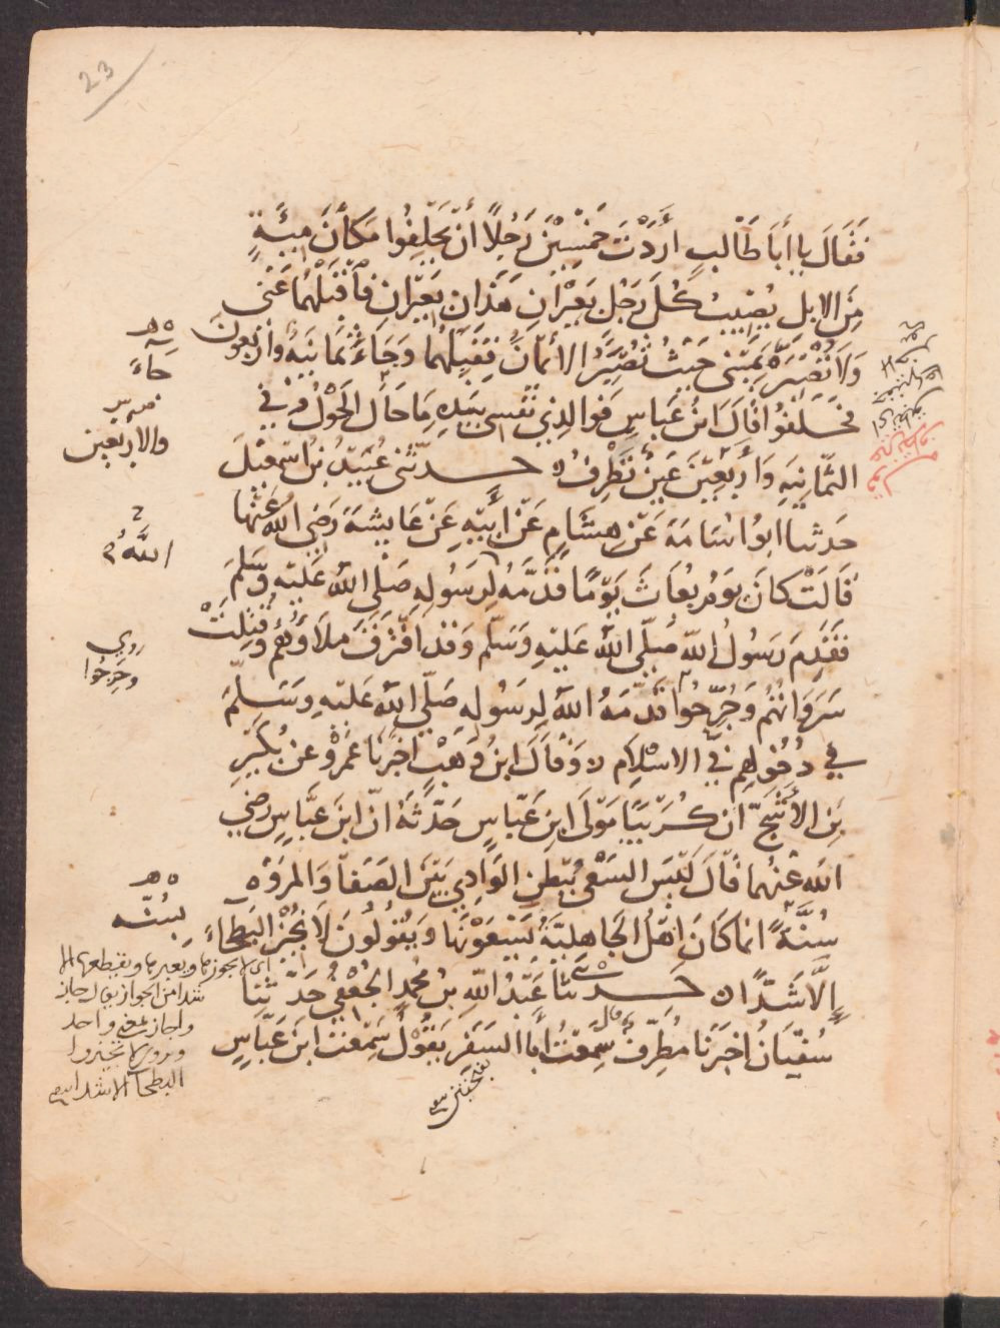 23
فَقَالَ يا أبَا طَالبٍ أرَدْتَ خَمْسِيْنَ رَجُلاً أنْ يَحْلِفُوا مَكَانَ مِيَةٍ
مِنَ الابلِ يُصِيبُ كُلَ رَجُلٍ بَعِيْرَانِ هَذَانِ بَعِيْرَانِ فَاقْبَلْهُمَا عَنِّى
وَلَا تُصْبَرَ يَمِيْنى حَيْثُ تُصْبَرُ الأيمَانُ فَقَبِلَهُمَا وَجَاءَ ثَمَانِيَةٌ وأرْبَعُونَ
فَحَلَفُوا قَالَ ابنُ عَبَاسٍ فَوَالذِي نَفْسِي بِيَدِهِ مَا حَالَ الحَوْلُ وَفِي
الثَمَانِيَةِ وَأرْبَعِيْنَ عَيْنٌ تَطْرِفُ ه حَدثَنى عُبَيْدُ بْنُ اسْمَعِيْلَ
حَدثنا ابُو اسَامَةَ عَنْ هِشَامٍ عَنْ أبِيْهِ عَنْ عَايشَةَ رَضِي اللهُ عَنْهَا
قَالَتْ كَانَ يَوْمُ بُعَاثَ يَوْمًا قَدَّمَهُ لِرَسُولِهِ صَلى اللهُ عَلَيْهِ وَسَلمَ
فَقَدِمَ رَسُولُ اللهِ صَلّى اللهُ عَلَيْهِ وَسَلّم وَقَدْ افْتَرَقَ مَلَاوُهُمْ وَقُتِلَتْ
سَرَوَاتُهُم وَجُرِّحُوا قَدَّمَهُ اللهُ لِرَسُولِهِ صَلّى اللهُ عَلَيْهِ وَسَلمَ
في دُخُولِهِم في الاسْلامِ ه وَقَالَ ابنُ وَهْبٍ اخبَرَنَا عَمْرٌو عَنْ بُكَيْرِ
بْنِ الأشَجّ أنَّ كُرَيْبًا مَوْلَى ابنِ عَبّاسٍ حَدّثَهُ انّ ابنَ عَبَّاسٍ رضي
الله عَنْهُما قَالَ لَيْسَ السَعْىُ بِبَطْنِ الوَادِي بَيْنَ الصَفَا وَالمرْوَة
سُنَّةً انمَا كَانَ اهْلُ الجَاهِليَّةُ يَسْعَوْنَهَا وَيَقُولُونَ لَا نُجِيْزُ البَطحَاءَ
إلَّا شَدًّا ه حَدثَنَا عَبْدُ اللهِ بنُ مُحَمدٍ الجُعْفِيُ حَدَّثَنَا
سُفْيَانُ اخبَرَنَا مُطَرِّفٌ سَمِعْتُ أبَا السَفَرِ يَقُوْلُ سَمِعْتُ ابنَ عَبّاسٍ
قال
حَاءَ
والاربعين
اللهُ
روي
وخَرجُوا
بسُنّة
اى لا نجوزها ويقطعها الا
شدا من الجواز يقال جاز
واجاز بمعنى واحد
البطحا الا شدا
بفتحتين